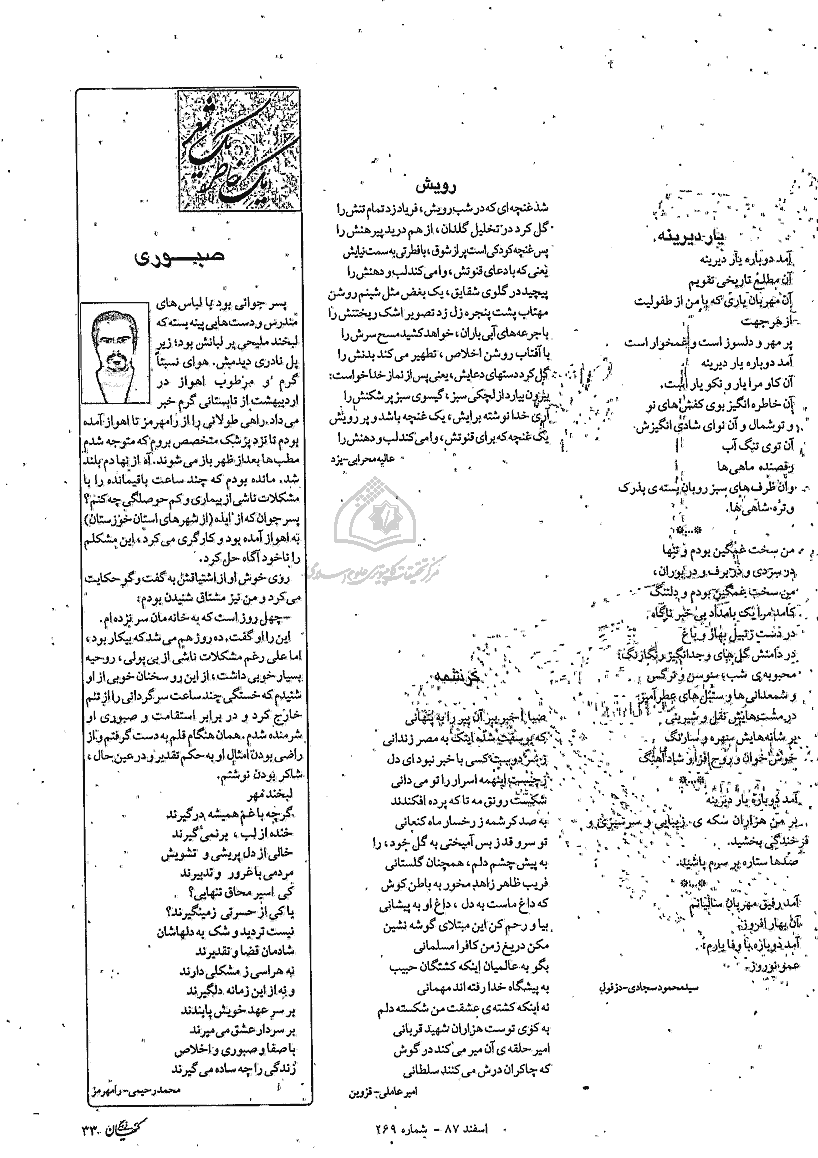 یار دیرینه
آمد دوباره یار دیرینه
آن مطلع تاریخی تقویم
آن مهربان یاری که با من از طفولیت
از هر جهت
پر مهر و دلسوز است و غمخوار است
آمد دوباره یار دیرینه
آن کاو مرا یار و نکو یار است.
آن خاطره انگیز بوی کفش‌های نو
و توشمال و آن نوای شادی انگیزش
آن توی تنگ آب
رقصنده ماهی‌ها
وآن ظرف‌های سبز روبان بسته‌ی پذرک
و تره‌شاهی‌ها.
*...*
من سخت غمگین بودم و تنها
در سردی و در برف و در بوران،
من سخت غمگین بودم و دلتنگ
کامد مرا یک بامداد بی خبر ناگاه
در دست زنبیل بهار و باغ
در دامنش گل‌های وجدانگیز رنگارنگ؛
محبوبه‌ی شب؛ سوسن و نرگس
و شمعدانی‌ها و سنبل‌های عطرآمیز
در مشت‌هایش نقل و شیرینی
بر شانه‌هایش سهره و سارنگ
خوش خوان و روح افزار شادآهنگ
*...*
آمد دوباره یار دیرینه
بر من هزاران سکه‌ی زیبایی و سرسبزی و
فرخندگی بخشید.
صدها ستاره بر سرم پاشید.
*...*
آمد رفیق مهربان سالیانم
آن بهار افروز.
آمد دوباره با وفا یارم؛
عمو نوروز.
سیدمحمود سجادی-دزفول
رویش
شد غنچه‌ای که در شب رویش، فریاد زد تمام تنش را
گل کرد در تخلیل گلدان، از هم درید پیرهنش را
پس غنچه کودکی است پر از شوق، با فطرتی به سمت نیایش
یعنی که با دعای قنوتش، وا می‌کند لب و دهنش را
پیچید در گلوی شقایق، یک بغض مثل شبنم روشن
مهتاب پشت پنجره زل زد تصویر اشک ریختنش را
با جرعه‌های آبی باران، خواهد کشید مسح سرش را
با آفتاب روشن اخلاص، تطهیر می‌کند بدنش را
گل کرد دستهای دعایش، یعنی پس از نماز خدا خواست:
بیرون بیارد از لچکی سبز، گیسوی سبز پرشکنش را
آری خدا نوشته برایش، یک غنچه باشد و پر رویش
یک غنچه که برای قنوتش، وا می‌کند لب و دهنش را
عالیه محرابی-یزد
کرشمه
صبا! خبر ببر آن پیر را به پنهانی
که یوسفت شده اینک به مصر زندانی
ز سر دوست کسی با خبر نبود ای دل
ز چیست اینهمه اسرار را تو می‌دانی
شکست رونق مه تا که پرده افکندند
به صد کرشمه ز رخسار ماه کنعانی
تو سرو قد ز بس آمیختی به گل خود را،
به پیش چشم دلم، همچنان گلستانی
فریب ظاهر زاهد مخور به باطن کوش
که داغ ماست به دل، داغ او به پیشانی
بیا و رحم کن این مبتلای گوشه نشین
مکن دریغ ز من کافرا مسلمانی
بگو به عالمیان اینکه کشتگان حبیب
به پیشگاه خدا رفته‌اند مهمانی
نه اینکه کشته‌ی عشقت من شکسته دلم
به کوی توست هزاران شهید قربانی
امیر حلقه‌ی آن میر می‌کند در گوش
که چاکران درش می‌کنند سلطانی
امیر عاملی-قزوین
یک خاطره یک شعر
صبوری
پسر جوانی بود با لباس‌های
مندرس و دست‌هایی پینه بسته که
لبخند ملیحی بر لبانش بود؛ زیر
پل نادری دیدمش. هوای نسبتاً
گرم و مرطوب اهواز در
اردیبهشت از تابستانی گرم خبر
می‌داد. راهی طولانی را از رامهرمز تا اهواز آمده
بودم تا نزد پزشک متخصص بروم که متوجه شدم
مطب‌ها بعد از ظهر باز می‌شوند. آه از نهادم بلند
شد. مانده بودم که چند ساعت باقیمانده را با
مشکلات ناشی از بیماری و کم حوصلگی چه کنم؟
پسر جوان که از ایذه (از شهرهای استان خوزستان)
به اهواز آمده بود و کارگری می‌کرد، این مشکلم
را ناخودآگاه حل کرد.
روی خوش او از اشتیاقش به گفت و گو حکایت
می‌کرد و من نیز مشتاق شنیدن بودم:
-چهل روز است که به خانه‌مان سر نزده‌ام.
این را او گفت. ده روز هم می‌شد که بیکار بود،
اما علی رغم مشکلات ناشی از بی‌پولی، روحیه
بسیار خوبی داشت، از این رو سخنان خوبی از او
شنیدم که خستگی چند ساعت سرگردانی را از تنم
خارج کرد و در برابر استقامت و صبوری او
شرمنده شدم. همان هنگام قلم به دست گرفتم و از
راضی بودن امثال او به حکم تقدیر و در عین حال،
شاکر بودن نوشتم.
لبخند مهر
گرچه با غم همیشه درگیرند
خنده از لب، بر نمی‌گیرند
خالی از دل پریشی و تشویش
مردمی با غرور و تدبیرند
کی اسیر محاق تنهایی؟
یا کی از حسرتی زمینگیرند؟
نیست تردید و شک به دلهاشان
شادمان قضا و تقدیرند
نه هراسی ز مشکلی دارند
و نه از این زمانه دلگیرند
بر سر عهد خویش پابندند
بر سردار عشق می‌میرند
با صفا و صبوری و اخلاص
زندگی را چه ساده می‌گیرند
محمد رحیمی-رامهرمز
مرکز تحقیقات کامپیوتری علوم اسلامی
اسفند ۸۷ - شماره ۲۶۹
کیهان ۳۳